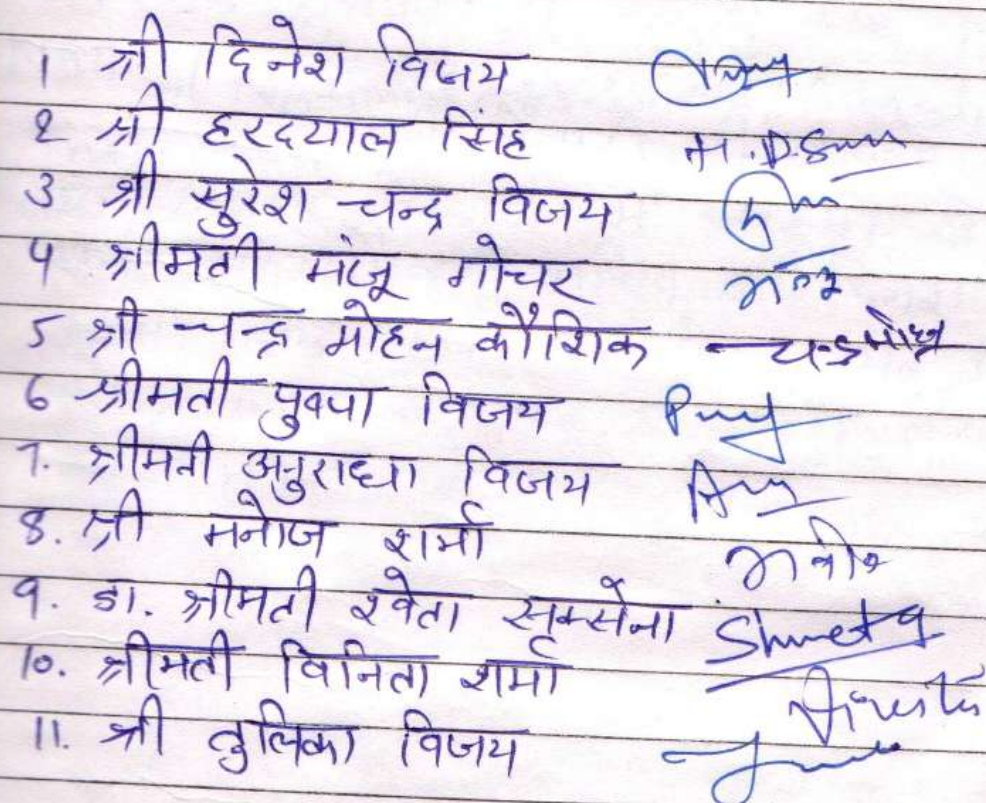 1 श्री दिनेश विजय
2 श्री हरदयाल सिंह H.D.
3 श्री सुरेश चन्द्र विजय
4 श्रीमती मंजू गोचर मन्जू
5 श्री चन्द्र मोहन कौशिक चन्द्र मोहन
6 श्रीमती पुष्पा विजय
7. श्रीमती अनुराधा विजय
8. श्री मनोज शर्मा मनोज
9. डा. श्रीमती श्वेता सक्सेना Shweta
10. श्रीमती विनिता शर्मा
11. श्री तुलिका विजय